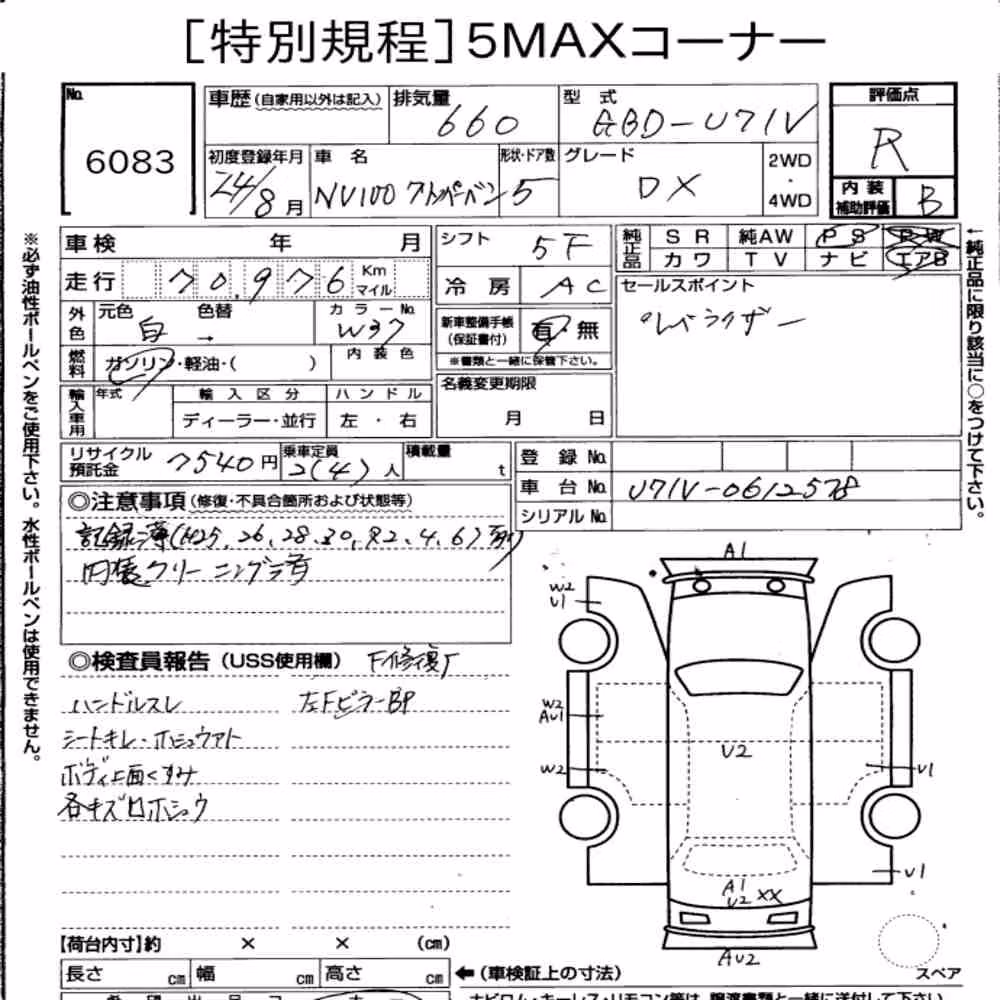 [特別規程]5MAXコーナー
No. 6083
車歴 (自家用以外は記入)
排気量 660
型式 GBD-U71V
評価点 R
初度登録年月 24/8月
車名 NV100
形状・ドア数 5
グレード DX
2WD ・ 4WD
内装補助評価 B
車検 年 月
シフト 5F
純正品 SR 純AW PS PW
カワ TV ナビ エアB
走行 70,976 Km マイル
冷房 AC
セールスポイント
レベライザー
外色 元色 白 色替 →
カラーNo. W37
新車整備手帳(保証書付) 有・無
※書類と一緒に保管下さい。
燃料 ガソリン・軽油・( )
内装色
名義変更期限 月 日
輸入車用 年式 輸入区分 ハンドル
ディーラー・並行 左・右
リサイクル預託金 7540円
乗車定員 2(4)人
積載量 t
登録No.
車台No. U71V-0612578
シリアルNo.
◎注意事項 (修復・不具合箇所および状態等)
記録簿(H25.26.28.30.R2.4.6)有り
内装クリーニング済
◎検査員報告 (USS使用欄)
ハンドルスレ
左FピラーBP
シートキレ・ホシュウアト
ボディ上面くすみ
各キズロホシュウ
A1
W2
U1
W2
AU1
U2
W2
U1
U1
A1
U2 XX
AU2
スペア
【荷台内寸】約 × × (cm)
長さ cm 幅 cm 高さ cm
←(車検証上の寸法)
※必ず油性ボールペンをご使用下さい。水性ボールペンは使用できません。
←純正品に限り該当に○をつけて下さい。